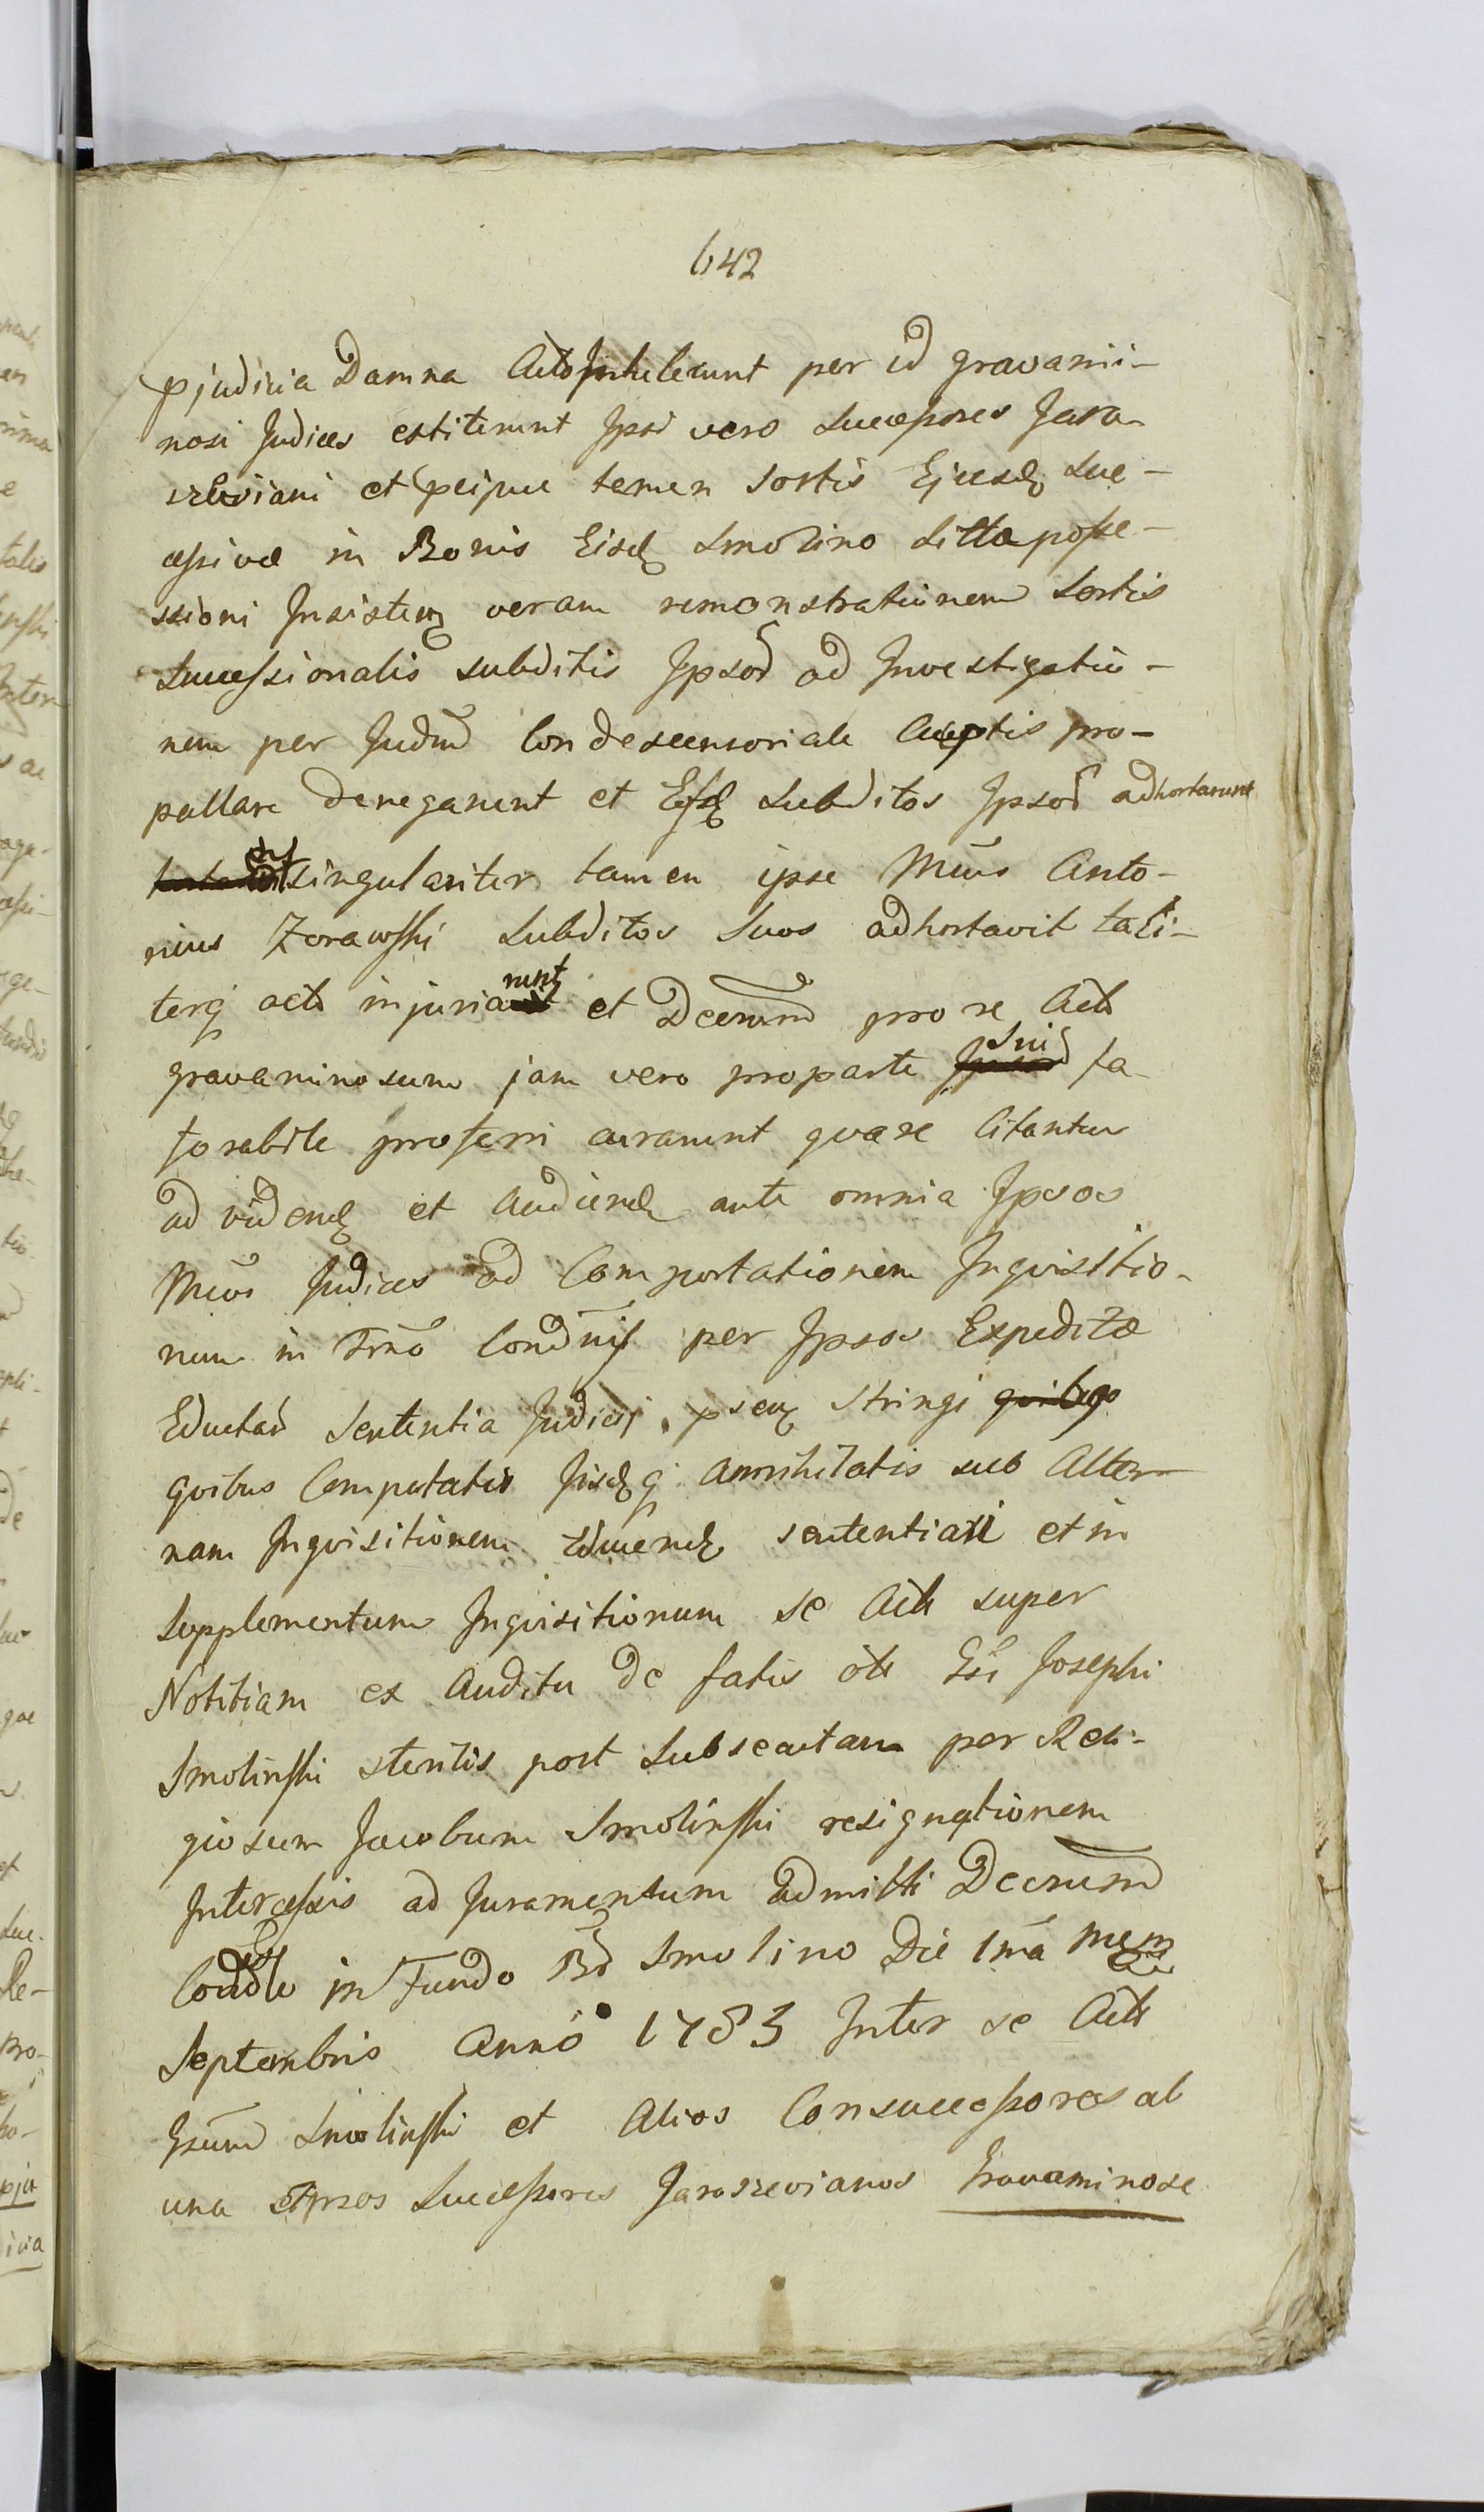 642
pjudicia Damna Acto Intulerunt per id gravami-
nosi Judices extiterunt Ipsi vero Sucessores Jara-
czeviani et pcipue temen Sortis Ejusdq Suc-
cessivæ in Bonis Eisdq Smolino Sitta posse-
ssioni Insistenq veram remonstrationem Sortis
Sucessionalis subditis Ipsor ad Investigatio-
nem per Judm Condescensoriale Aceptis pro-
pallare denegarunt et Subditos Ipsor adhortarunt
singulariter tamen ipse Mcus Anto-
nius Zorawski Subditos Suos adhortavit tali-
terq acto injuriarunt et Decrum pro se Acto
gravaminosum jam vero pro parte Sui fa-
forabile proferri curarunt quare Citantur
ad videndq et Audiendq ante omnia Ipsos
Mcos Judices ad Comportationem Inqvisitio-
num in Trno Condnis per Ipsos Expedita
Eductar Sententia Judicij psenq stringi
qvibus Comportatis Iisdqq Annihilatis sub Alter-
nam Inqvisitionem Educendq sententiari et in
Supplementum Inqvisitionum se Acto super
Notitiam ex Auditu de fatis olt Gsi Josephi
Smolinski sterilis post Subsecutam per Reli-
giosum Jacobum Smolinski resignationem
Intercessis ad Juramentum admitti Decrum
Condle in Fundo Bor Smolino Die 1ma Mens
Septembris Anno 1783 Inter se Acto
Gsum Smolinski et Alios Consucessores ab
una Etipsos Sucessores Jaraczevianos Gravaminose